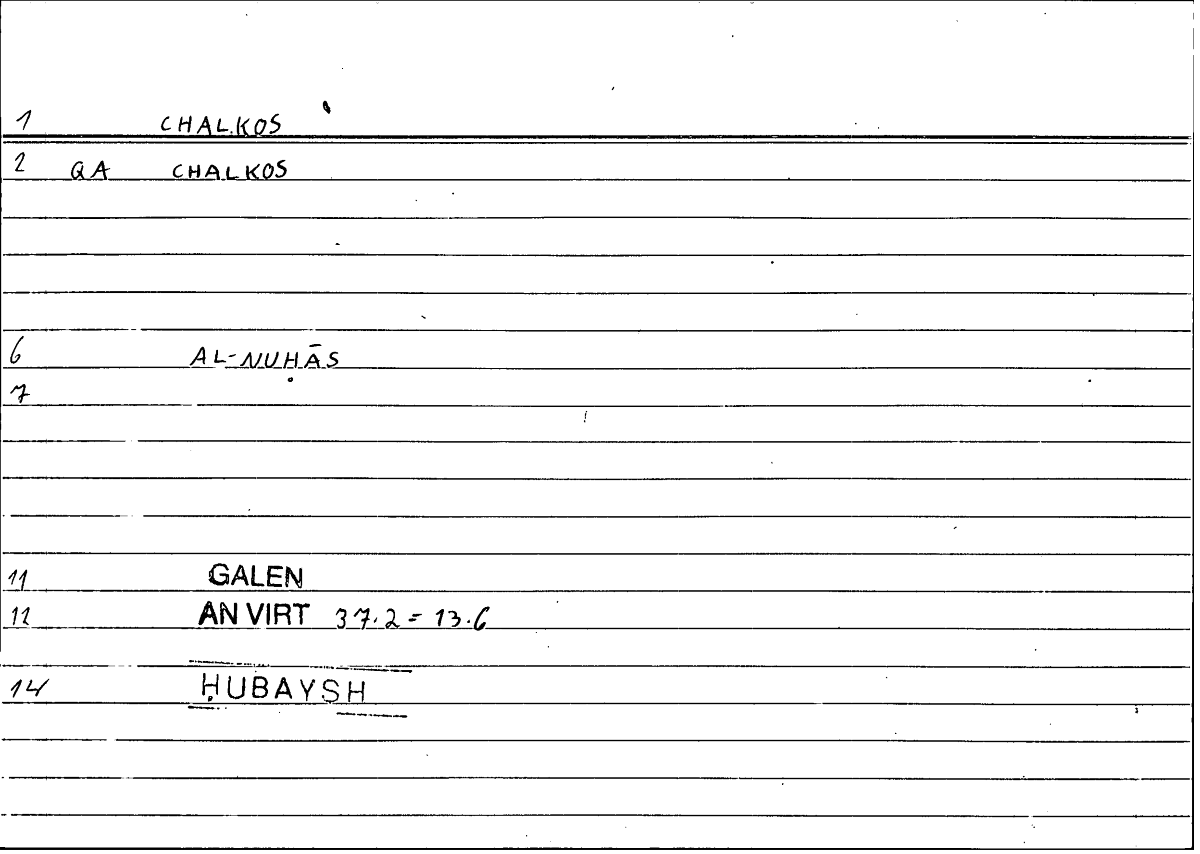 1 CHALKOS
2 QA CHALKOS
6 AL-NUḤĀS
7
11 GALEN
12 AN VIRT 37.2 = 13.6
14 ḤUBAYSH